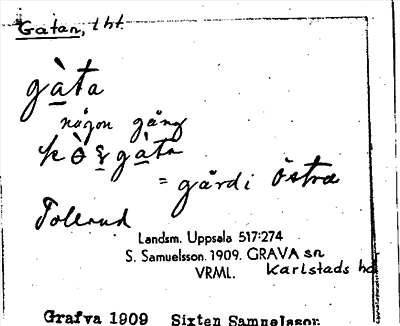 Gatan, 1 ht.
gàta
någon gång
gàta
= gård i Östra
Tollerud
Landsm. Uppsala 517:274
S. Samuelsson. 1909. GRAVA sn
VRML. Karlstads hd
Grafva 1909 Sixten Samuelsson